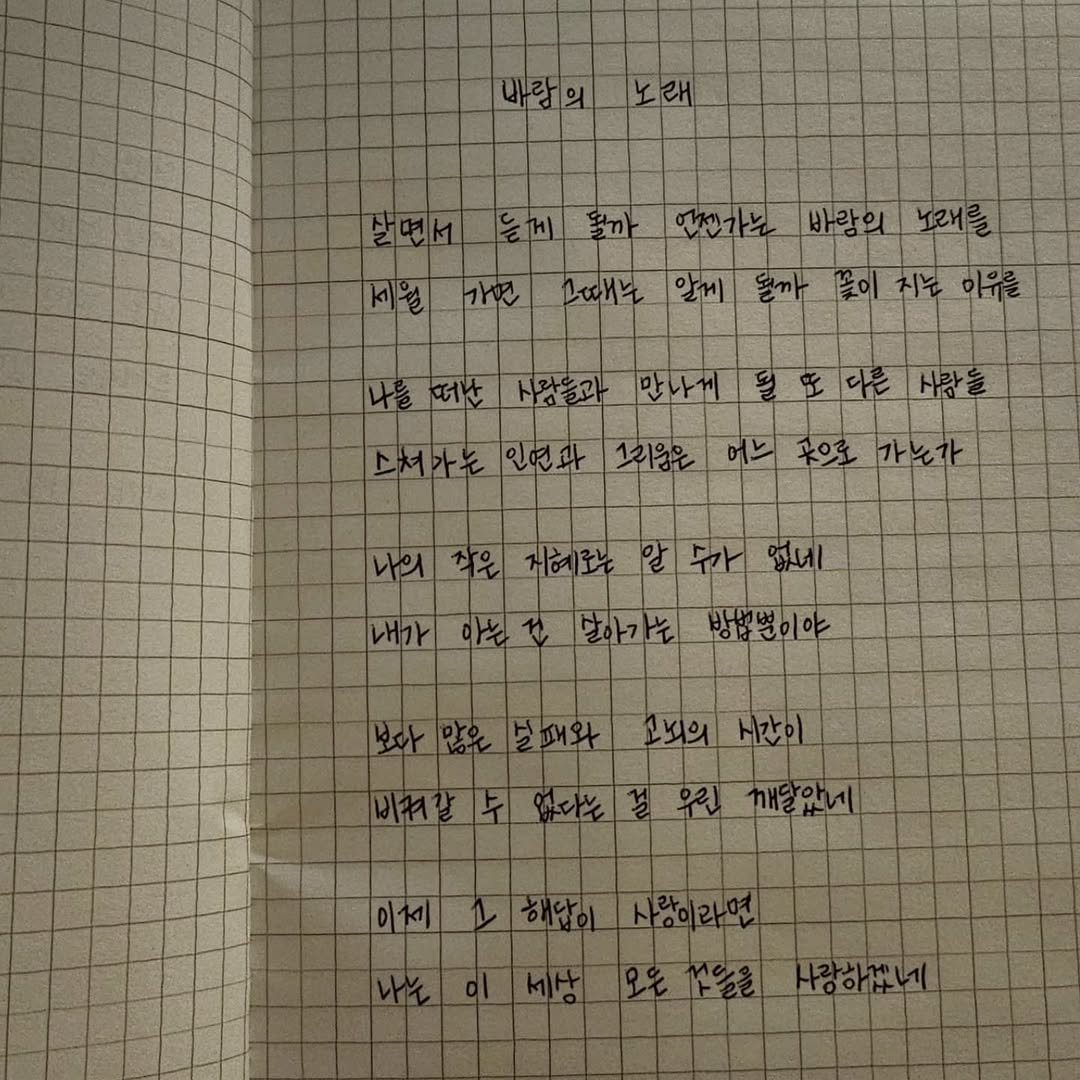 바람의 노래
살면서 듣게 될까 언젠가는 바람의 노래를
세월 가면 그때는 알게 될까 꽃이 지는 이유를
나를 떠난 사람들과 만나게 될 또 다른 사람들
스쳐가는 인연과 그리움은 어느 곳으로 가는가
나의 작은 지혜로는 알 수가 없네
내가 아는 건 살아가는 방법뿐이야
보다 많은 실패와 고뇌의 시간이
비켜갈 수 없다는 걸 우린 깨달았네
이제 그 해답이 사랑이라면
나는 이 세상 모든 것들을 사랑하겠네